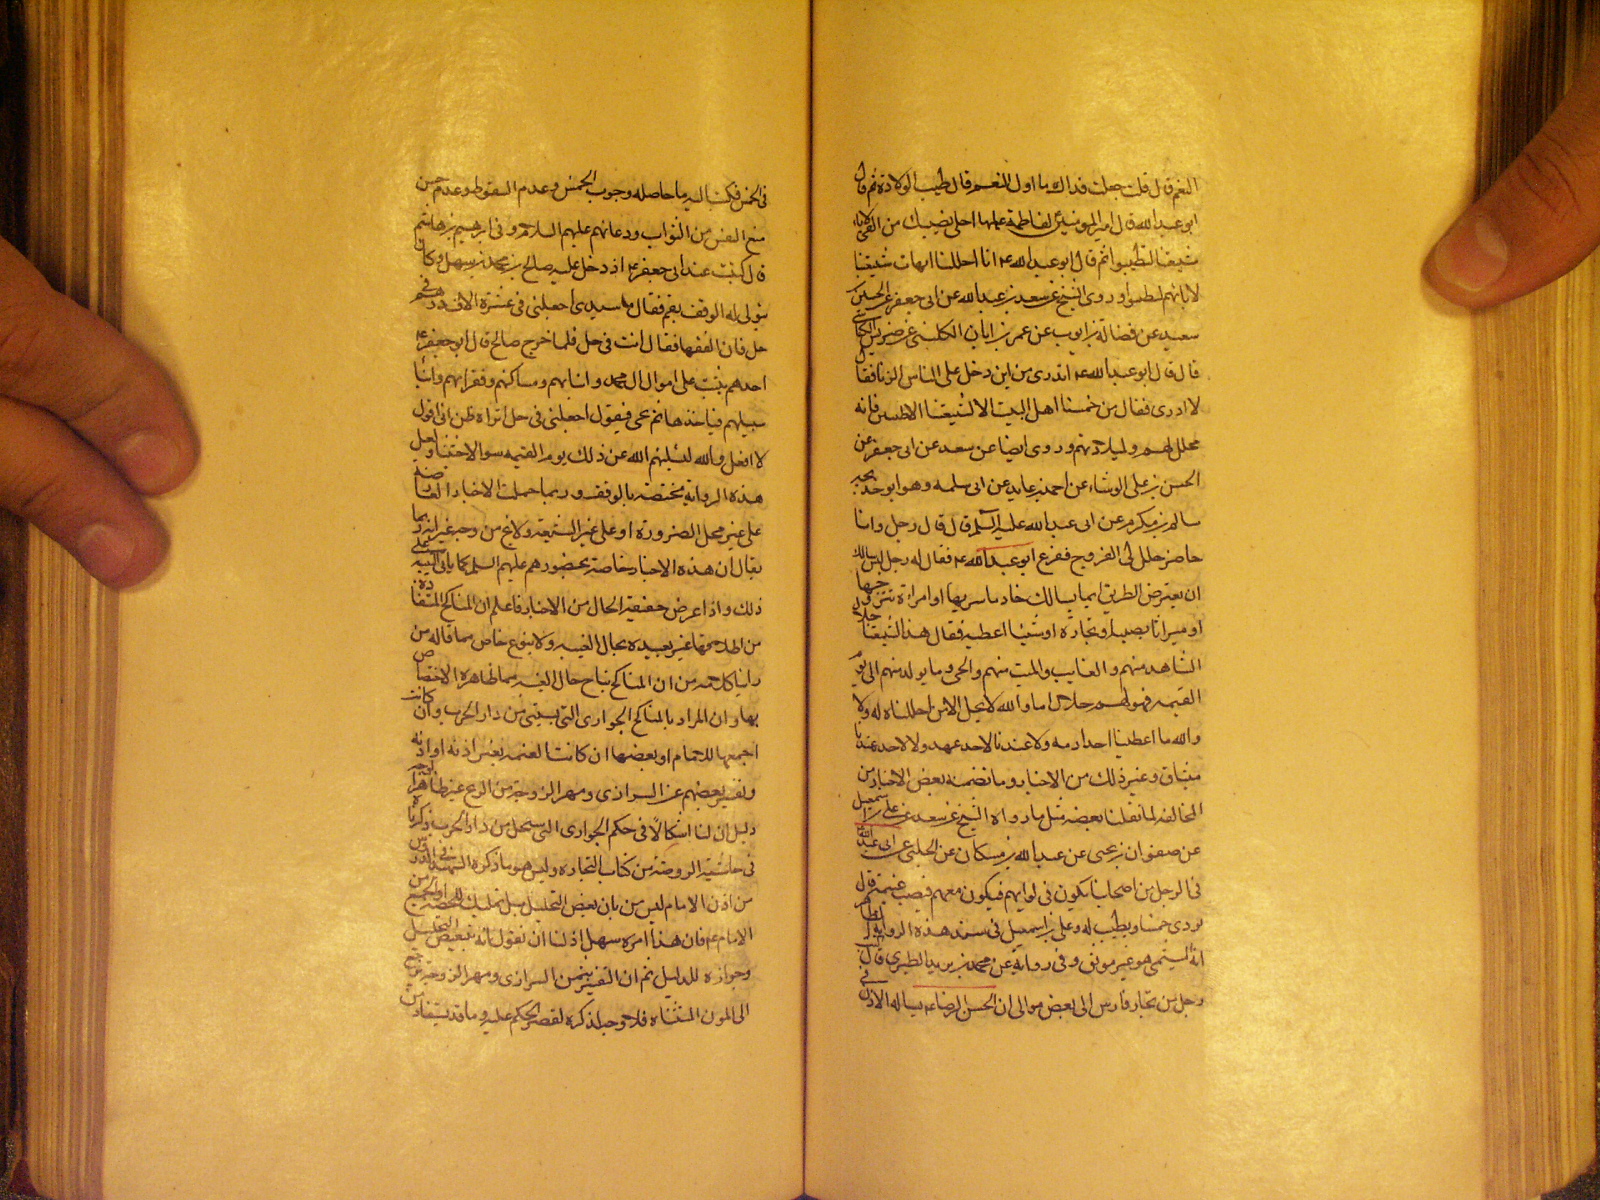 النعم قال قلت جعلت فداك ما اول النعم قال طيب الولادة ثم قال
ابو عبد الله قال امير المومنين لفاطمة عليها احلى نصيبك من الفئ لاباء
شيعتنا ليطيبوا ثم قال ابو عبد الله ع انا احللنا امهات شيعتنا
لابائهم ليطيبوا وروى الشيخ عن سعد بن عبد الله عن ابى جعفر عن الحسين بن
سعيد عن فضالة بن ايوب عن عمر بن ابان الكلبى عن ضريس الكناسى
قال قال ابو عبد الله ع اتدرى من اين دخل على الناس الزنا فقلت
لا ادرى فقال من خمسنا اهل البيت الا لشيعتنا الاطيبين فانه
محلل لهم ولميلادهم وروى ايضا عن سعد عن ابى جعفر عن
الحسن بن على الوشاء عن احمد بن عايد عن ابى سلمه وهو ابو خديجه
سالم بن مكرم عن ابى عبد الله عليه السلم قال قال رجل وانا
حاضر حلل لى الفروج ففزع ابو عبد الله ع فقال له رجل ليس يسالك
ان يعترض الطريق انما يسالك خادما يشريها او امراة يتزوجها
او ميراثا يصيبه او تجارة او شيئا اعطيه فقال هذا لشيعتنا حلال
الشاهد منهم والغايب والميت منهم والحى وما يولد منهم الى يوم
القيمه فهو لهم حلال اما والله لا يحل الا لمن احللنا له ولا
والله ما اعطينا احدا ذمه ولا عندنا لاحد عهد ولا لاحد عندنا
ميثاق وغير ذلك من الاخبار وما تضمنه بعض الاخبار من
المخالفه لما نقلنا بعضه مثل ما رواه الشيخ عن سعد عن على بن اسمعيل
عن صفوان بن يحيى عن عبد الله بن مسكان عن الحلبى عن ابى عبد الله
فى الرجل من اصحابنا يكون فى لوائهم فيكون معهم فيصيب غنيمة قال
يودى خمسنا ويطيب له وعلى بن اسمعيل فى سند هذه الرواية
انه الميثمى هو غير موثق وفى رواية عن محمد بن يزيد الطبرى قال كتب
رجل من تجار فارس الى بعض موالى ابى الحسن الرضا ع يساله الاذن فى
فى الخمس فكتب اليه ما حاصله وجوب الخمس وعدم السقوط وعدم حسن
منع النفس من الثواب ودعائهم عليهم السلام وفى ابرهيم بن هاشم
قال كنت عند ابى جعفر ع اذ دخل عليه صالح بن محمد بن سهل وكان
يتولى له الوقف بقم فقال يا سيدى اجعلنى فى عشرة الاف درهم فى
حل فان انفقتها فقال انت فى حل فلما خرج صالح قال ابو جعفر ع
احدهم يثب على اموال ال محمد وايتامهم ومساكينهم وفقرائهم وابناء
سبيلهم فياخذها ثم يجى فيقول اجعلنى فى حل اتراه ظن انى اقول
لا افعل والله ليسئلنهم الله عن ذلك يوم القيمه سوالا حثيثا ولعل
هذه الرواية مختصة بالوقف وربما حملت الاخبار
على غير محل الضرورة او على غير الشيعة ولا يخ من وجه غير انه ربما
يقال ان هذه الاخبار خاصة بحضورهم عليهم السلم كما ياتى التنبيه على
ذلك واذا عرض حقيقة الحال من الاخبار فاعلم ان المناكح المستفادة
من اطلاقها غير بعيده بحال الغيبه ولا بنوع خاص مما قاله من
راينا كلامه من ان المناكح تباح حال الغيبه مما ظاهره الاختصاص
بها وان المراد بالمناكح الجوارى التى تسبى من دار الحرب وان كانت
اجمعها للامام او بعضها ان كانت الغنيمه بغير اذنه او اذنه
وتفسير بعضهم عن السرارى ومهر الزوجة من الربح غير ظاهر الوجه
دليل ان لنا اشكالا فى حكم الجوارى التى ستحل من دار الحرب ذكرناه
فى حاشية الروضة من كتاب التجاره وليس هو ما ذكره الشهيد فى الدروس
من اذن الامام ليس من باب بعض التحليل بل تمليك للحصه او الجميع من
الامام ع فان هذا امره سهل اذ لنا ان نقول بانه تبعيض التحليل
وجوازه للدليل ثم ان التفسير بثمن السرارى ومهر الزوجة يرجع
الى المؤن المستثناه فلا وجه لذكره لقصر الحكم عليه وما قد يستفاد من